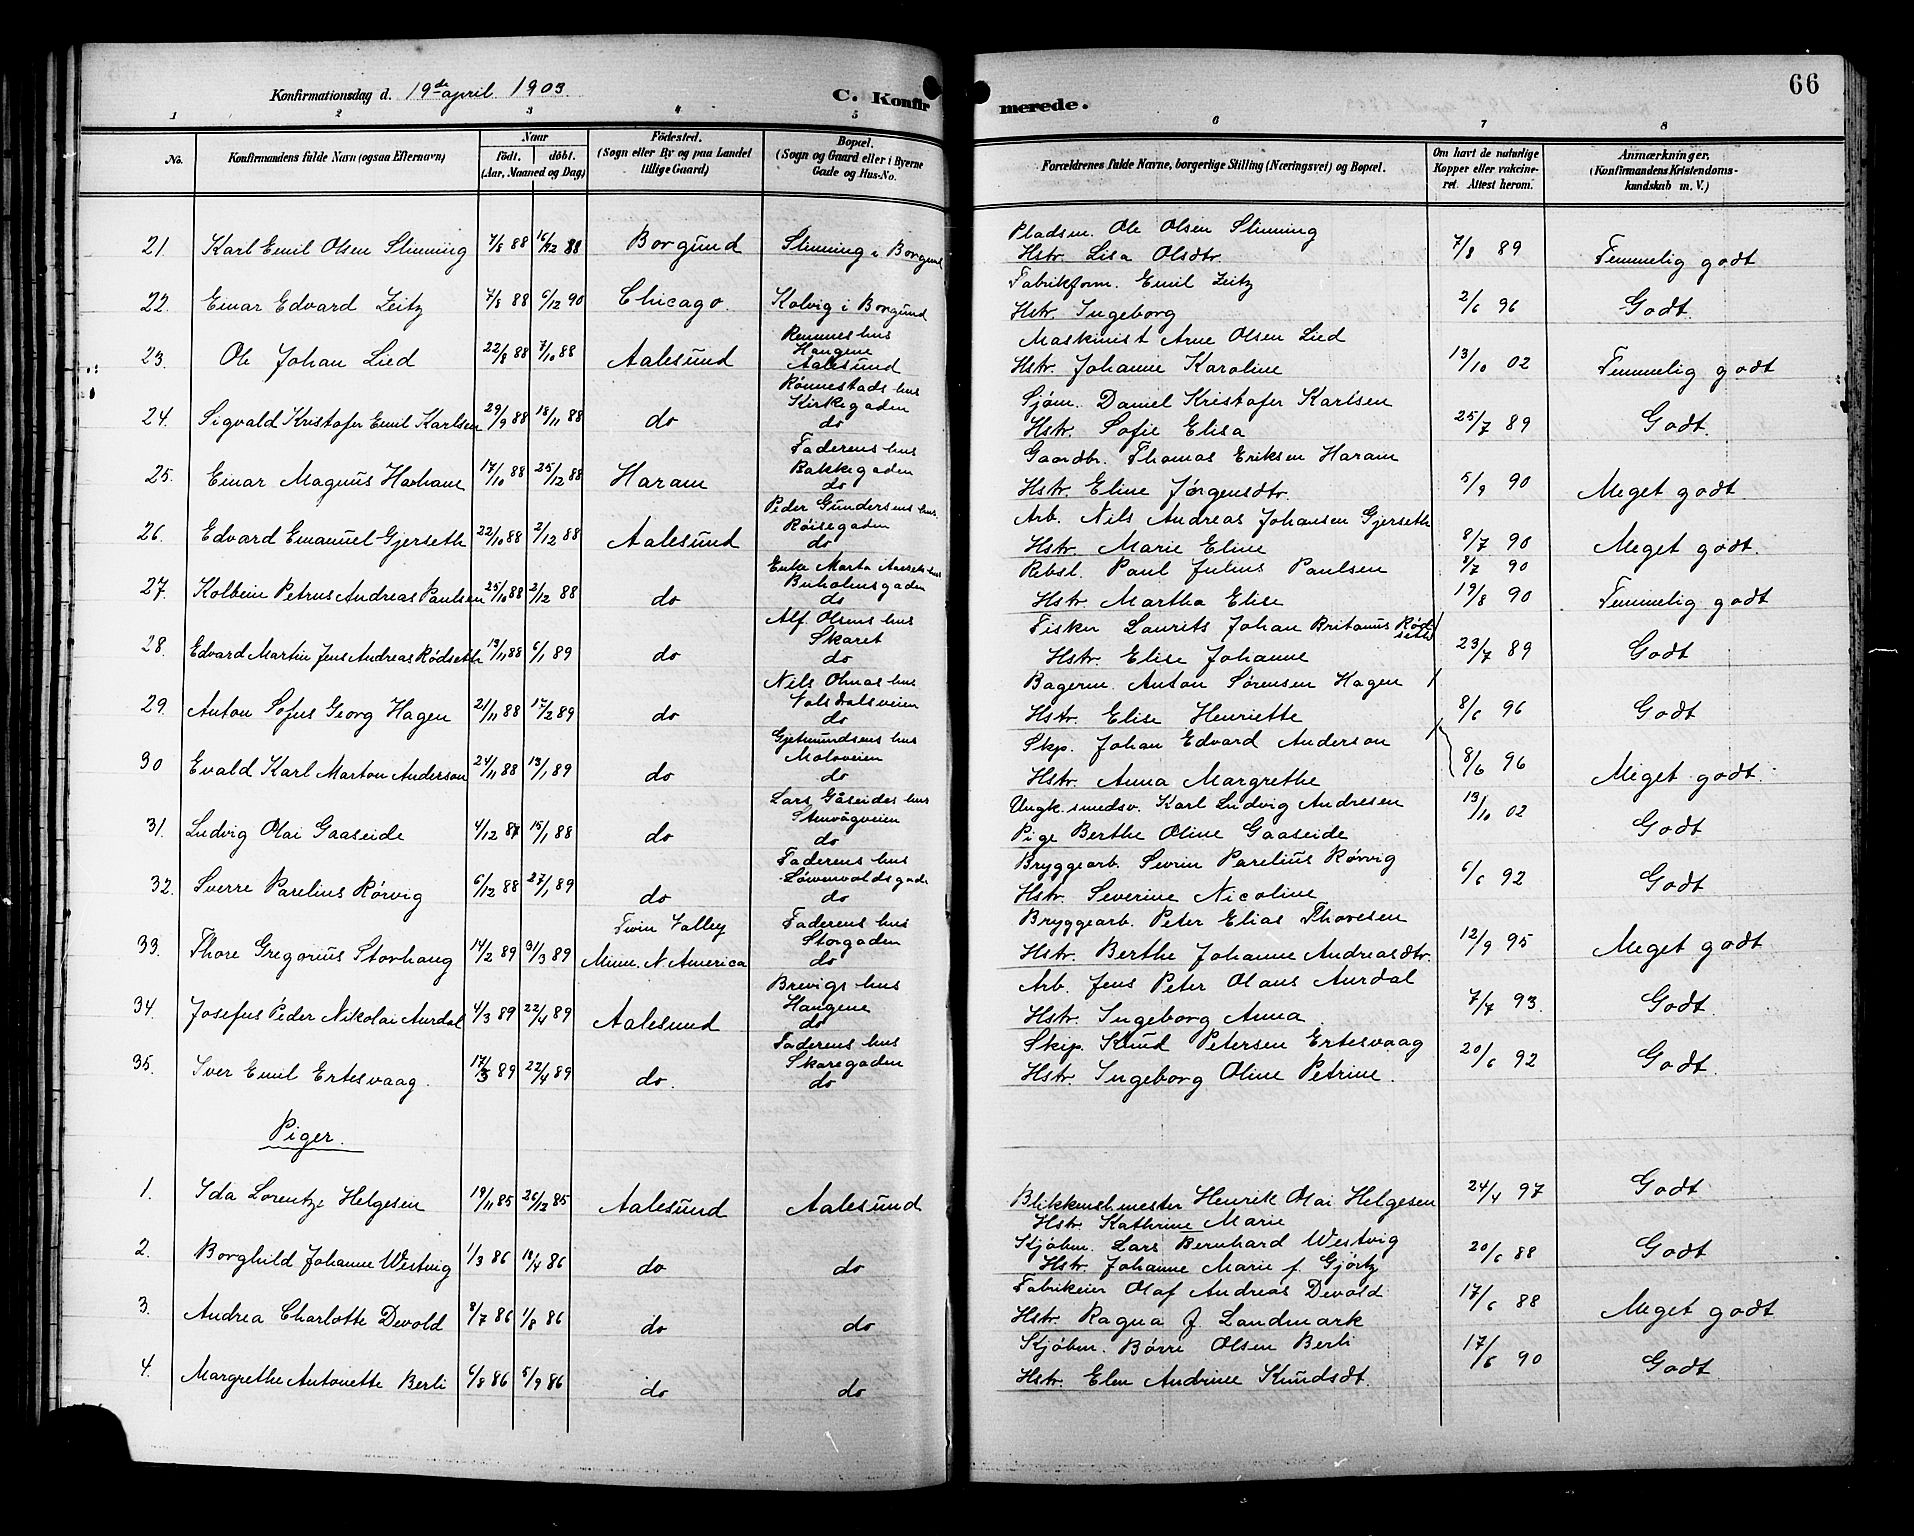 66
Konfirmationsdag d. 19de april 1903.
C. Konfirmerede.
1 2 3 4 5 6 7 8
No.
Konfirmandens fulde Navn (ogsaa Efternavn)
Naar
födt. döbt.
(Aar, Maaned og Dag)
Födested.
(Sogn eller By og paa Landet
tillige Gaard)
Bopæl.
(Sogn og Gaard eller i Byerne
Gade og Hus-No.
Forældrenes fulde Navne, borgerlige Stilling (Næringsvei) og Bopæl.
Om havt de naturlige
Kopper eller vakcine-
ret. Attest herom.
Anmærkninger.
(Konfirmandens Kristendoms-
kundskab m. V.)
21. Karl Emil Olsen Slinning 7/8 88 16/12 88 Borgund Slinning i Borgund
Pladsm. Ole Olsen Slinning
Hstr. Lisa Olsdtr. 7/8 89 Temmelig godt
22. Einar Edvard Zeitz 7/8 88 6/12 90 Chicago Kolvig i Borgund
Fabrikform. Emil Zeitz
Hstr. Ingeborg 2/6 96 Godt.
23. Ole Johan Lied 22/8 88 7/10 88 Aalesund
Remmes hus
Haugene
Aalesund
Maskinist Arne Olsen Lied
Hstr. Johanne Karoline 13/10 02 Temmelig godt
24. Sigvald Kristofer Emil Karlsen 29/9 88 18/11 88 do
Rönnestads hus
Kirkegaden
do
Sjöm. Daniel Kristofer Karlsen
Hstr. Sofie Elisa 25/7 89 Godt.
25. Einar Magnus Harham 17/10 88 25/12 88 Haram
Faderens hus
Bakkegaden
do
Gaardbr. Thomas Eriksen Haram
Hstr. Eline Jørgensdtr. 5/9 90 Meget godt.
26. Edvard Emanuel Gjerseth 22/10 88 2/12 88 Aalesund
Peder Gundersens hus.
Röisegaden
do
Arb. Nils Andreas Johansen Gjerseth
Hstr. Marie Eline 8/7 90 Meget godt.
27. Kolbein Petrus Andreas Paulsen 25/10 88 2/12 88 do
Enke Marta Aarseths hus
Buholmsgaden
do
Rebsl. Paul Julius Paulsen 8/7 90
Hstr. Martha Elise 19/8 90 Temmelig godt
28. Edvard Martin Jens Andreas Rödseth 13/11 88 6/1 89 do
Alf. Olsens hus
Skaret
do
Fisker Laurits Johan Britanus Rödseth
Hstr. Elise Johanne 23/7 89 Godt
29. Anton Sofus Georg Hagen 21/11 88 17/2 89 do
Nils Olnas hus
Volsdalsveien
do
Bagerm. Anton Sørensen Hagen
Hstr. Elise Henriette 8/6 96 Godt
30 Evald Karl Marton Anderson 24/11 88 13/1 89 do
Gjetmundsens hus
Moloveien
do
Skp. Johan Edvard Anderson
Hstr. Anna Margrethe 8/6 96 Meget godt.
31. Ludvig Olai Gaaseide 4/12 87 15/1 88 do
Lars Gåseides hus
Stenvågveien
do
Ungk. smedsv. Karl Ludvig Andresen
Pige Berthe Oline Gaaseide 13/10 02 Godt
32. Sverre Parelius Rörvig 6/12 88 27/1 89 do
Faderens hus
Löwenvoldsgade
do
Bryggearb. Sevrin Parelius Rörvig
Hstr. Severine Nicoline 6/6 92 Godt
33. Thore Gregorius Storhaug 14/2 89 31/3 89
Twin Valley
Minn. N. America
Faderens hus
Storgaden
do
Bryggearb. Peter Elias Thoresen
Hstr. Berthe Johanne Andreasdtr. 12/9 95 Meget godt
34. Josefus Peder Nikolai Aurdal 4/3 89 22/4 89 Aalesund
Brevigs hus
Haugene
do
Arb. Jens Peter Olaus Aurdal
Hstr. Ingeborg Anna 7/7 93. Godt.
35. Iver Emil Ertesvaag. 17/3 89 22/4 89 do.
Faderens hus
Skaregaden
do
Skip. Knud Petersen Ertesvaag
Hstr. Ingeborg Oline Petrine. 20/6 92 Godt.
Piger.
1. Ida Lorentze Helgesen 19/11 85 26/12 85 Aalesund Aalesund
Blikkensl.mester Henrik Olai Helgesen
Hstr. Kathrine Marie 24/4 97 Godt
2. Borghild Johanne Westvig 1/3 86 18/4 86 do do
Kjöbm. Lars Bernhard Westvig
Hstr. Johanne Marie f. Gjörtz 20/6 88 Godt
3. Andrea Charlotte Devold 8/7 86 1/8 86 do do
Fabrikeier Olaf Andreas Devold
Hstr. Ragna f. Landmark 17/6 88 Meget godt
4. Margrethe Antonette Berli 6/8 86 5/9 86 do do
Kjöbm. Børre Olsen Berli
Hstr. Elen Andrine Knudsdt. 17/6 90 Godt